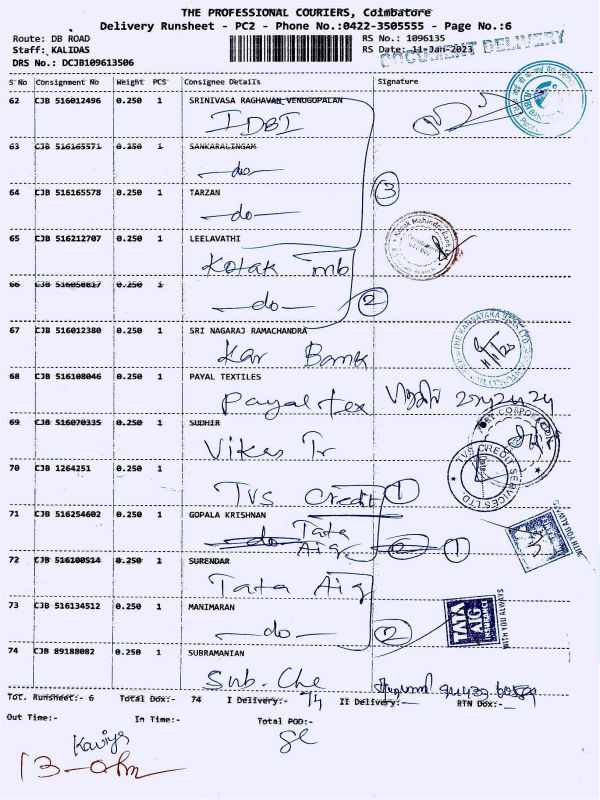 THE PROFESSIONAL COURIERS, Coimbatore
Delivery Runsheet - PC2 - Phone No.:0422-3505555 - Page No.:6
Route: DB ROAD RS No.: 1096135
Staff: KALIDAS RS Date: 11-Jan-2023
DOCUMENT DELIVERY
DRS No.: DCJB109613506
S No Consignment No Weight PCS Consignee Details Signature
62 CJB 516012496 0.250 1 SRINIVASA RAGHAVAN VENUGOPALAN
IDBI
63 CJB 516165571 0.250 1 SANKARALINGAM
-do-
64 CJB 516165578 0.250 1 TARZAN
-do-
3
65 CJB 516212707 0.250 1 LEELAVATHI
Kotak mb
66 CJB 516058817 0.250 1
-do-
2
67 CJB 516012380 0.250 1 SRI NAGARAJ RAMACHANDRA
Kar Bank
68 CJB 516108046 0.250 1 PAYAL TEXTILES
Payal tex
69 CJB 516070335 0.250 1 SUDHIR
Vikas Tr
70 CJB 1264251 0.250 1
TVS Credit 1
TVS CREDIT SERVICES LTD
71 CJB 516254602 0.250 1 GOPALA KRISHNAN
do Tata
Aig 2 1
WITH YOU ALWAYS
72 CJB 516100514 0.250 1 SURENDAR
Tata Aig
73 CJB 516134512 0.250 1 MANIMARAN
-do-
2
TATA AIG INSURANCE
WITH YOU ALWAYS
74 CJB 89188082 0.250 1 SUBRAMANIAN
Sub. Che
Tot. Runsheet:- 6 Total Dox:- 74 I Delivery:- 74 II Delivery:- RTN Dox:-
Out Time:- In Time:- Total POD:-
Kaviya